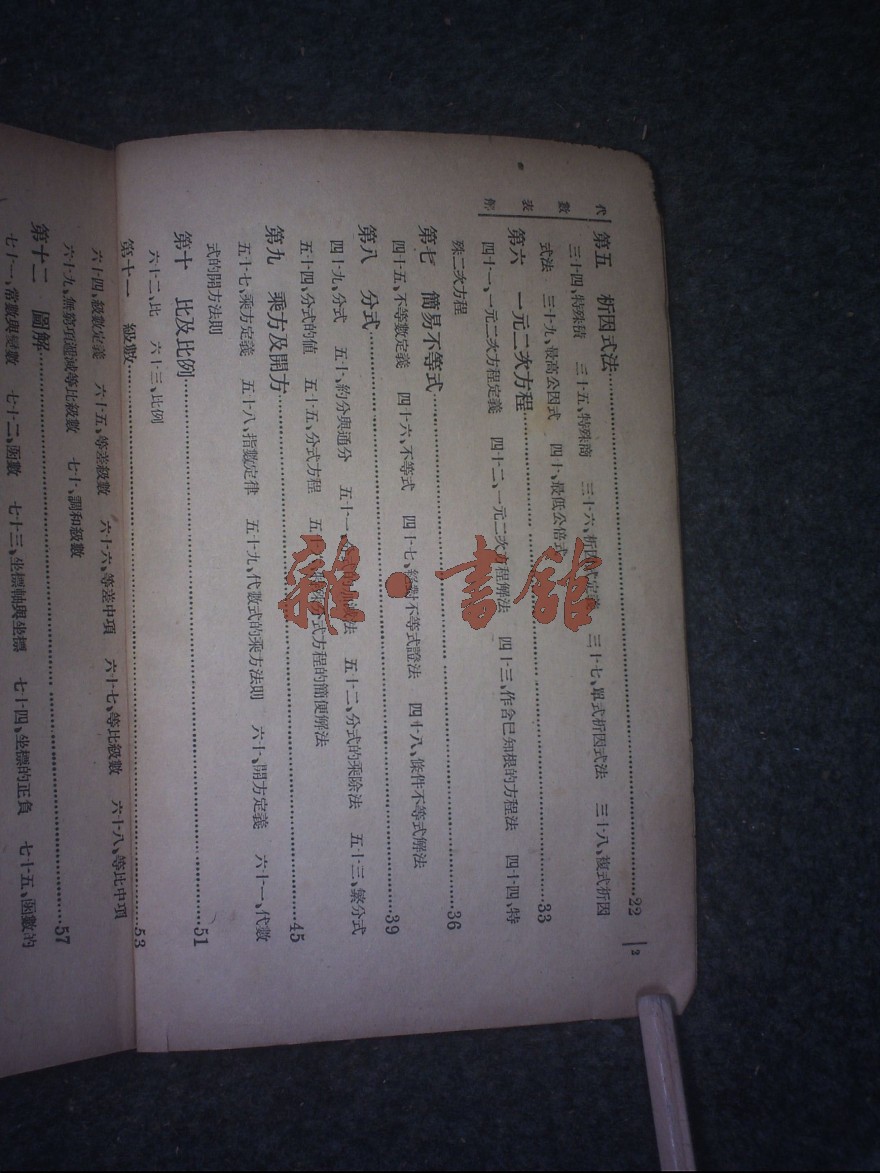 代數表解
2
第五 析因式法……22
三十四、特殊積 三十五、特殊商 三十六、析因式定義 三十七、單式析因式法 三十八、複式析因
式法 三十九、最高公因式 四十、最低公倍式
第六 一元二次方程……33
四十一、一元二次方程定義 四十二、一元二次方程解法 四十三、作含已知根的方程法 四十四、特
殊二次方程
第七 簡易不等式……36
四十五、不等數定義 四十六、不等式 四十七、絕對不等式證法 四十八、條件不等式解法
第八 分式……39
四十九、分式 五十、約分與通分 五十一、法 五十二、分式的乘除法 五十三、繁分式
五十四、分式的值 五十五、分式方程 五十六、分式方程的簡便解法
第九 乘方及開方……45
五十七、乘方定義 五十八、指數定律 五十九、代數式的乘方法則 六十、開方定義 六十一、代數
式的開方法則
第十 比及比例……51
六十二、比 六十三、比例
第十一 級數……53
六十四、級數定義 六十五、等差級數 六十六、等差中項 六十七、等比級數 六十八、等比中項
六十九、無窮項遞減等比級數 七十、調和級數
第十二 圖解……57
七十一、常數與變數 七十二、函數 七十三、坐標軸與坐標 七十四、坐標的正負 七十五、函數的
雜·書館